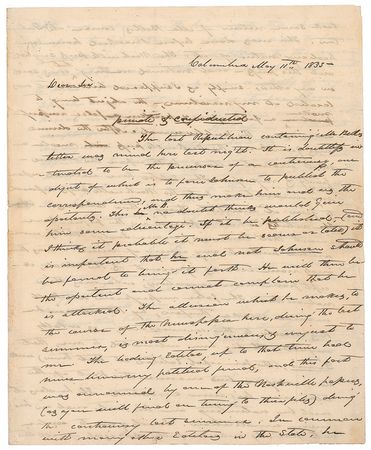 Columbia May 11th 1835 -
Dear Sir,
private & confidential
The last Republican containing Mr Bell's
letter was recd here last night. It is doubtless in-
tended to be the precursor of a controversy, one
object of which is to force Johnson to publish the
correspondence, and thus make him and us the
This Mr B. no doubt thinks would give
him some advantage. If it be published, (and
I think it probable it must be sooner or later) it
is important that he and not Johnson should
be forced to bring it forth. He will then be
the and cannot complain that he
is attacked. The allusion which he makes, to
the course of the Newspaper here, during the last
summer, is most disingenuous, & unjust to
me. The Editor, up to that time had
been my political friend, and this fact
was announced by one of the Nashville papers,
(as you will find on turning to their files) during
the last summer. In common
with many other Editors in the State, he